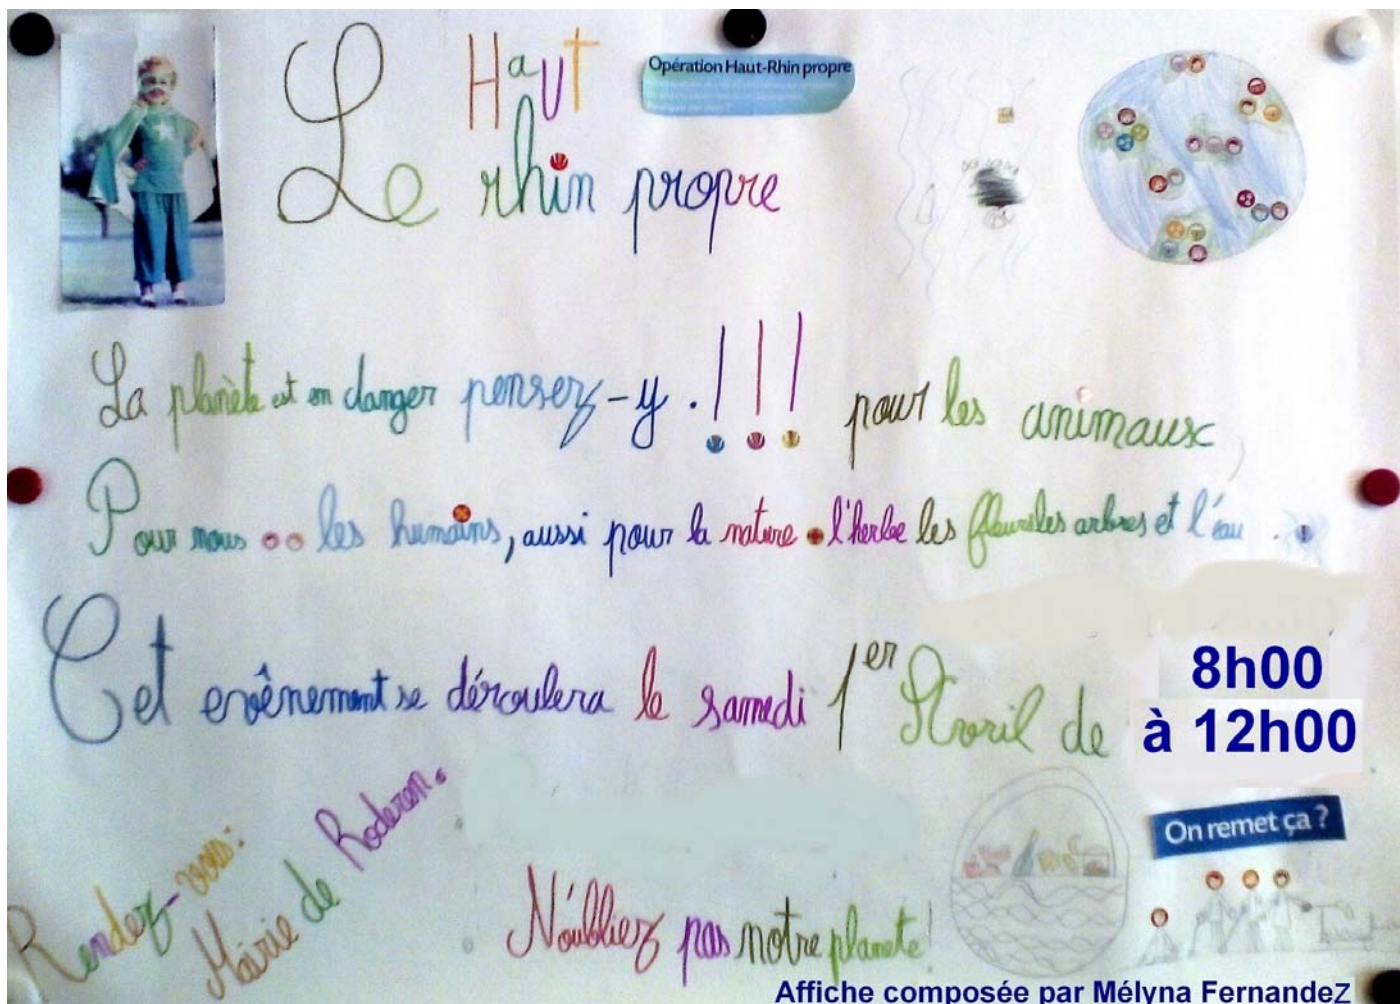 Haut
Opération Haut-Rhin propre
Le rhin propre
La planète est en danger pensez-y . ! ! ! pour les animaux,
Pour nous les humains, aussi pour la nature l'herbe les fleurs les arbres et l'eau .
Cet evênement se déroulera le samedi 1er Avril de
8h00
à 12h00
Rendez-vous :
Mairie de Roderen.
On remet ça ?
N'oubliez pas notre planete !
Affiche composée par Mélyna Fernandez